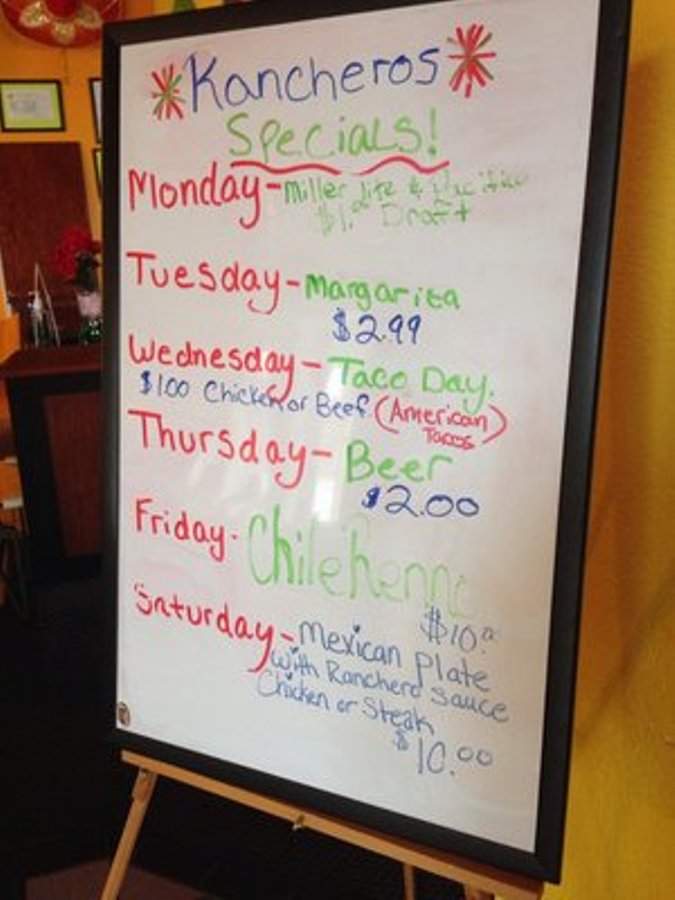 Kancheros
Specials!
Monday - Miller lite & Pacifico
$1.00 Draft
Tuesday - Margarita
$2.99
Wednesday - Taco Day.
$1.00 Chicken or Beef (American Tacos)
Thursday - Beer
$2.00
Friday - Chile Renno
$10.00
Saturday - Mexican plate
with Ranchero sauce
Chicken or Steak
$10.00